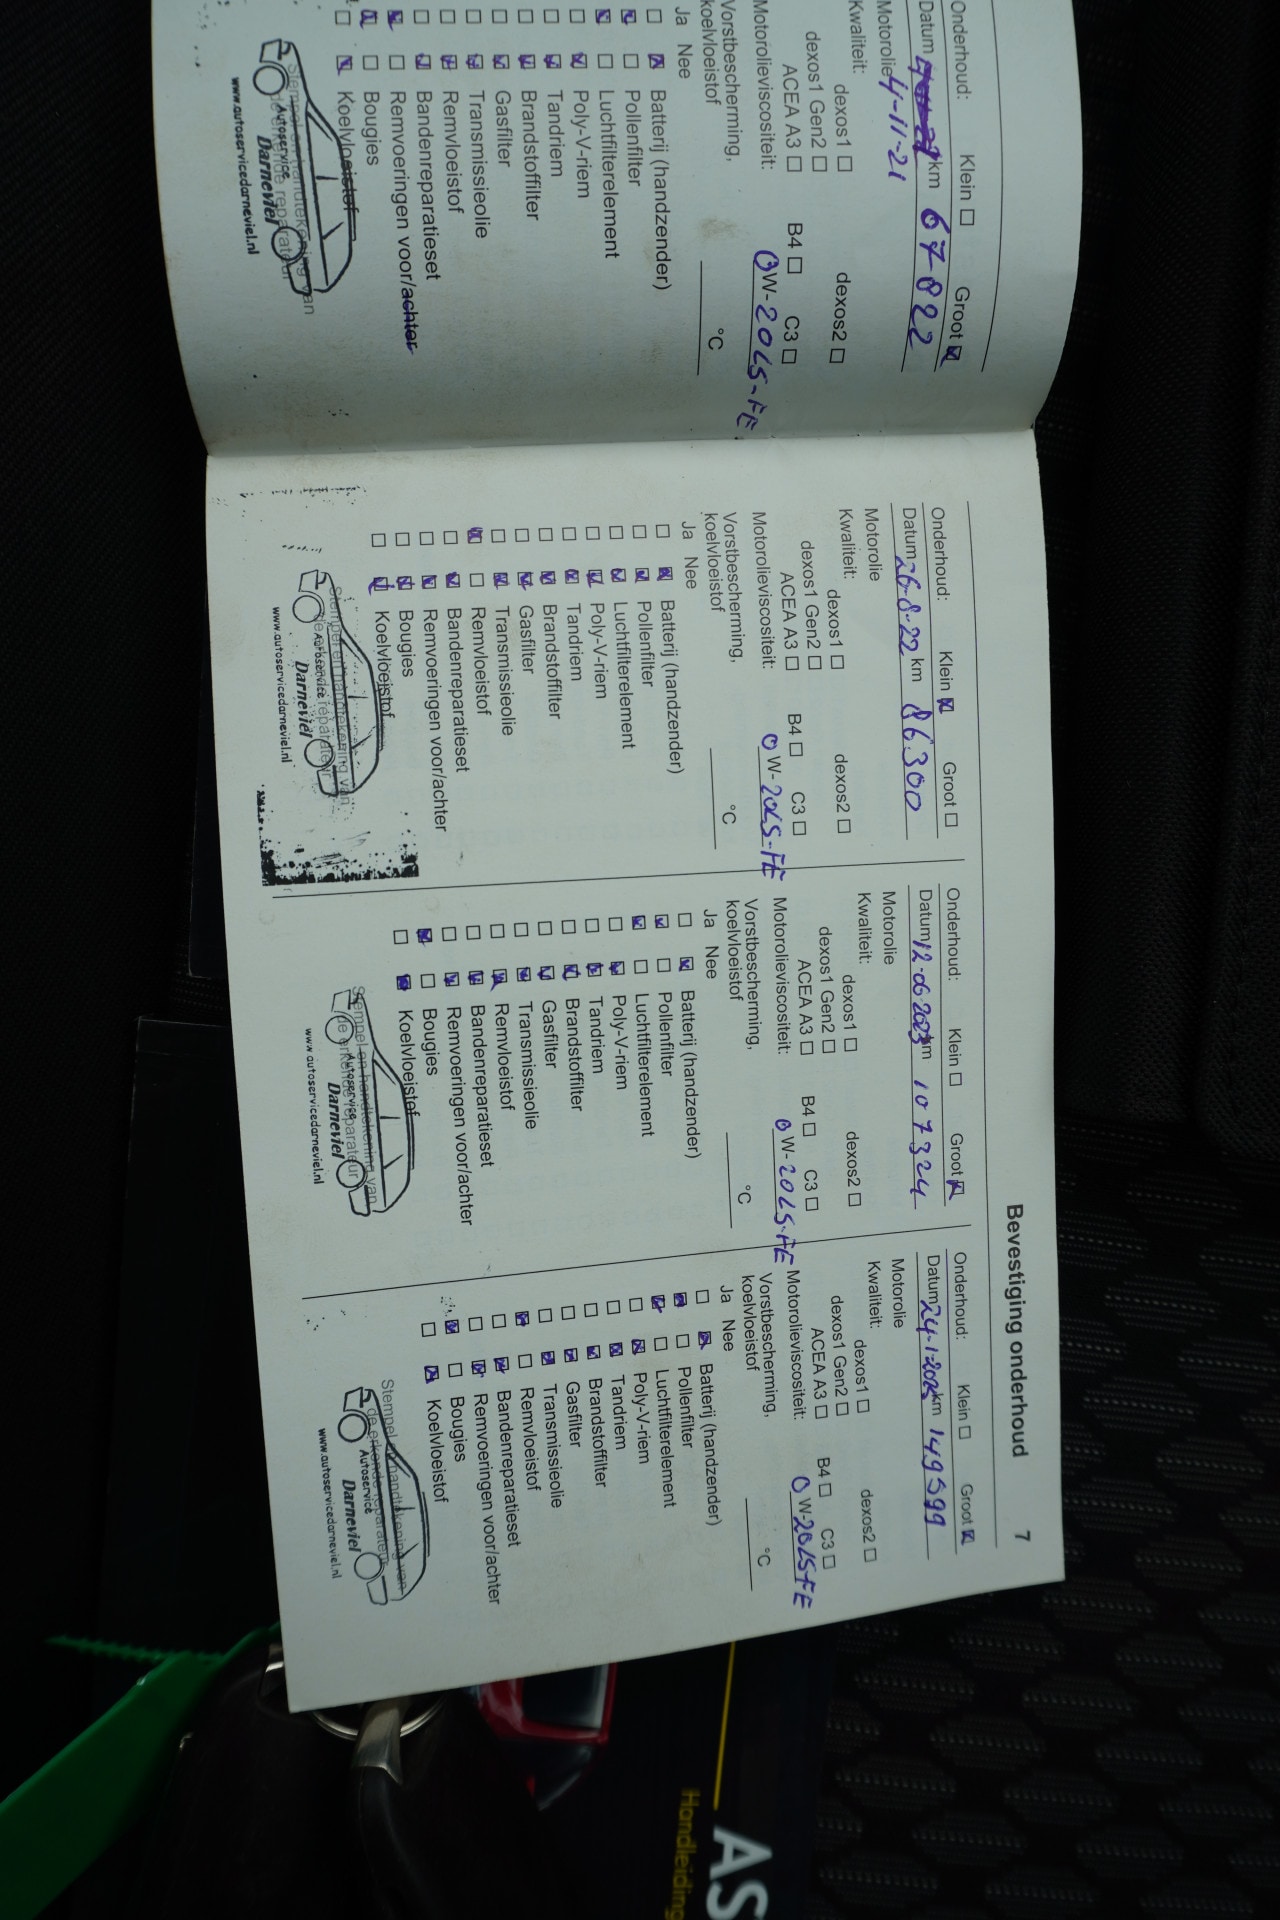 Onderhoud: Klein Groot
Datum km 67822
Motorolie 4-11-21
Kwaliteit: dexos1 dexos2
dexos1 Gen2
ACEA A3 B4 C3
Motorolieviscositeit: 0W-20LS-FE
Vorstbescherming,
koelvloeistof °C
Ja Nee
Batterij (handzender)
Pollenfilter
Luchtfilterelement
Poly-V-riem
Tandriem
Brandstoffilter
Gasfilter
Transmissieolie
Remvloeistof
Bandenreparatieset
Remvoeringen voor/achter
Bougies
Koelvloeistof
Stempel en handtekening van
de erkende reparateur
Autoservice
Darneviel
www.autoservicedarneviel.nl
Bevestiging onderhoud 7
Onderhoud: Klein Groot
Datum 26-8-22 km 86300
Motorolie
Kwaliteit: dexos1 dexos2
dexos1 Gen2
ACEA A3 B4 C3
Motorolieviscositeit: 0W-20LS-FE
Vorstbescherming,
koelvloeistof °C
Ja Nee
Batterij (handzender)
Pollenfilter
Luchtfilterelement
Poly-V-riem
Tandriem
Brandstoffilter
Gasfilter
Transmissieolie
Remvloeistof
Bandenreparatieset
Remvoeringen voor/achter
Bougies
Koelvloeistof
Stempel en handtekening van
de erkende reparateur
Autoservice
Darneviel
www.autoservicedarneviel.nl
Onderhoud: Klein Groot
Datum 12-06 2023 km 107324
Motorolie
Kwaliteit: dexos1 dexos2
dexos1 Gen2
ACEA A3 B4 C3
Motorolieviscositeit: 0W-20LS-FE
Vorstbescherming,
koelvloeistof °C
Ja Nee
Batterij (handzender)
Pollenfilter
Luchtfilterelement
Poly-V-riem
Tandriem
Brandstoffilter
Gasfilter
Transmissieolie
Remvloeistof
Bandenreparatieset
Remvoeringen voor/achter
Bougies
Koelvloeistof
Stempel en handtekening van
de erkende reparateur
Autoservice
Darneviel
www.autoservicedarneviel.nl
Onderhoud: Klein Groot
Datum 24-1-2025 km 149599
Motorolie
Kwaliteit: dexos1 dexos2
dexos1 Gen2
ACEA A3 B4 C3
Motorolieviscositeit: 0W-20LS-FE
Vorstbescherming,
koelvloeistof °C
Ja Nee
Batterij (handzender)
Pollenfilter
Luchtfilterelement
Poly-V-riem
Tandriem
Brandstoffilter
Gasfilter
Transmissieolie
Remvloeistof
Bandenreparatieset
Remvoeringen voor/achter
Bougies
Koelvloeistof
Stempel en handtekening van
de erkende reparateur
Autoservice
Darneviel
www.autoservicedarneviel.nl
AS
Handleiding